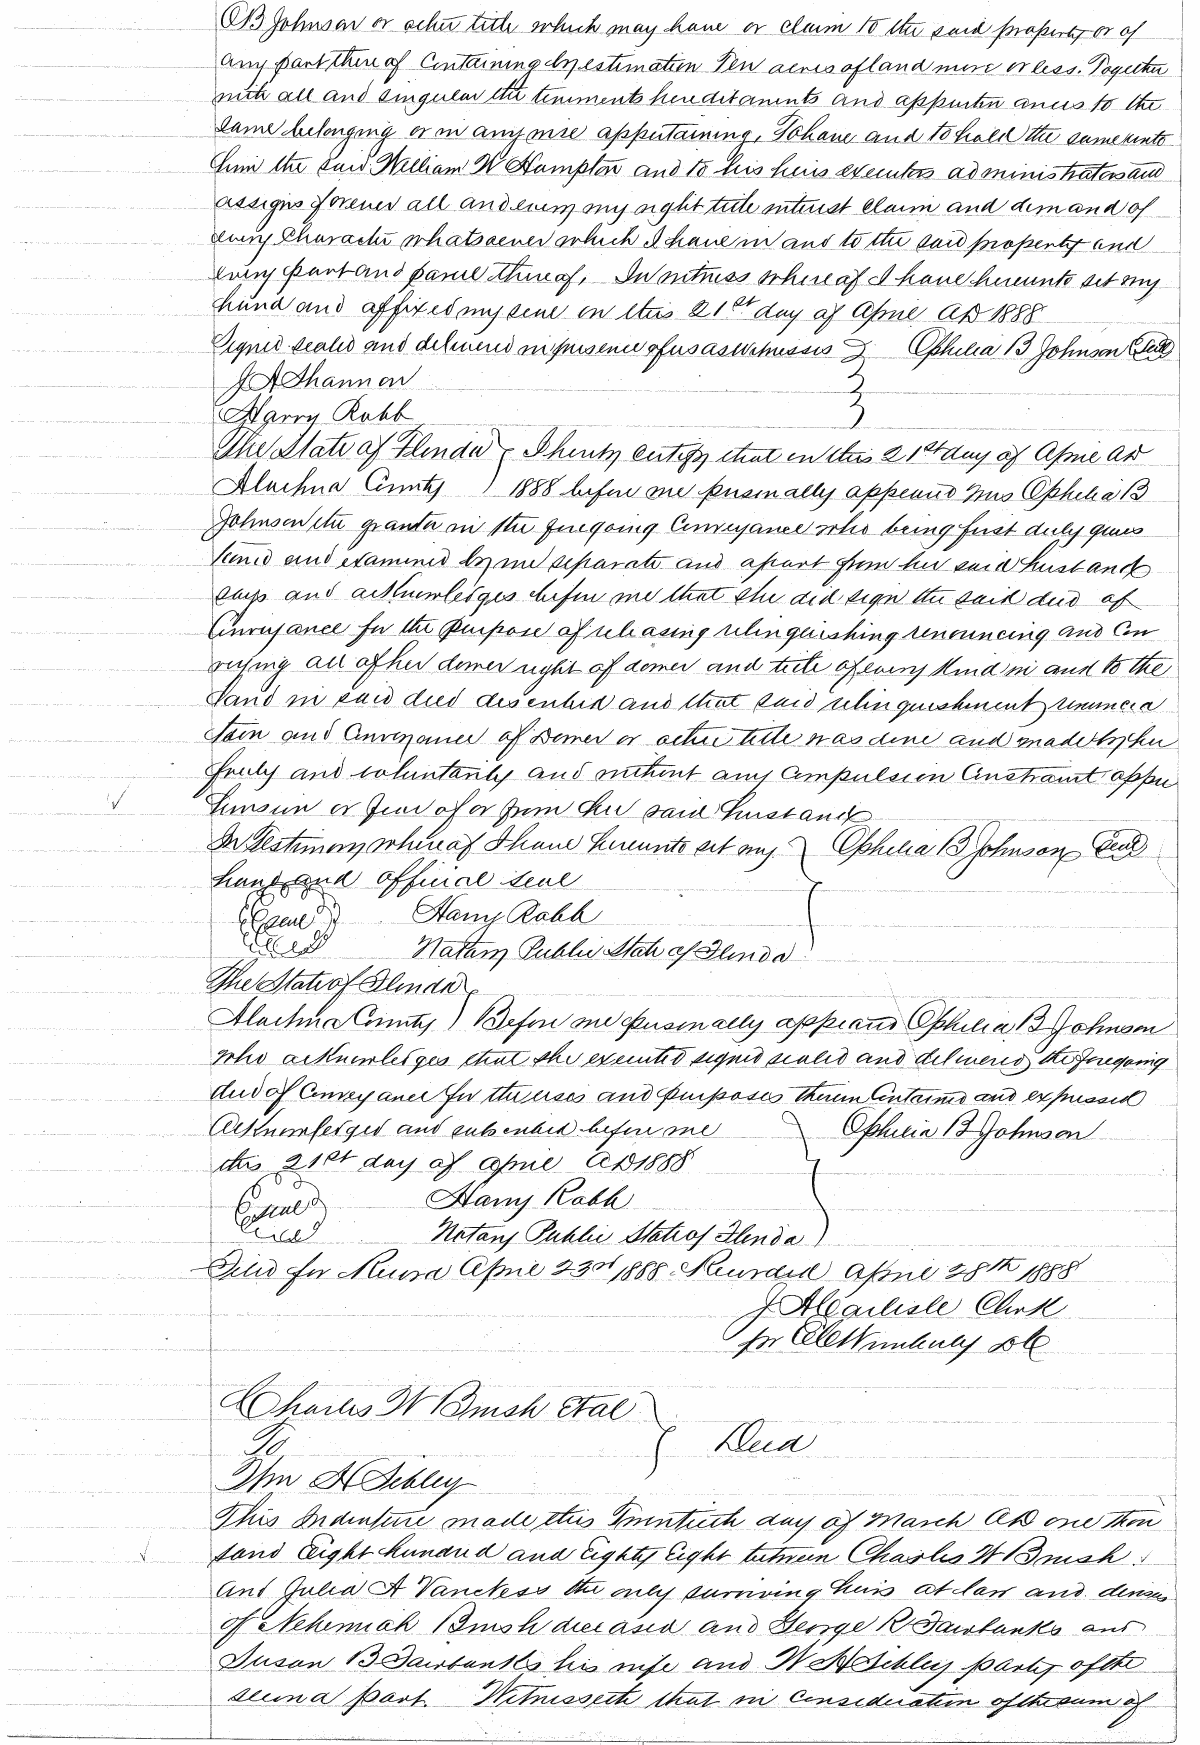 O B Johnson or other title which may have or claim to the said property or of
any part thereof Containing by estimation Ten acres of land more or less. Together
with all and singular the tenements hereditaments and appurtenances to the
same belonging or in anywise appertaining, To have and to hold the same unto
him the said William W Hampton and to his heirs executors administrators and
assigns forever all and every my right title interest claim and demand of
every Character whatsoever which I have in and to the said property and
every part and parcel thereof, In witness whereof I have hereunto set my
hand and affixed my seal on this 21st day of April AD 1888
Signed sealed and delivered in presence of us as witnesses } Ophelia B Johnson Seal
J A Shannon
Harry Robb
The State of Florida } I hereby certify that on this 21st day of April AD
Alachua County ) 1888 before me personally appeared Mrs Ophelia B
Johnson the grantor in the foregoing Conveyance who being first duly ques
tioned and examined by me separate and apart from her said husband
says and acknowledges before me that she did sign the said deed of
Conveyance for the purpose of releasing relinquishing renouncing and Con
veying all of her dower right of dower and title of every kind in and to the
land in said deed described and that said relinquishment renuncia
tion and Conveyance of Dower or other title was done and made by her
freely and voluntarily and without any Compulsion Constraint appre
hension or fear of or from her said husband
In Testimony whereof I have hereunto set my } Ophelia B Johnson Seal
hand and official seal
Seal Harry Robb
Notary Public State of Florida
The State of Florida
Alachua County ) Before me personally appeared Ophelia B Johnson
who acknowledges that she executed signed sealed and delivered the foregoing
deed of Conveyance for the uses and purposes therein Contained and expressed
Acknowledged and subscribed before me } Ophelia B Johnson
this 21st day of April AD 1888
Seal Harry Robb
Notary Public State of Florida )
Filed for Record April 23rd 1888 Recorded April 28th 1888
J A Carlisle Clerk
for DC
Charles W Brush et al
To } Deed
Wm H Sibley
This Indenture made this Twentieth day of March AD one thou
sand Eight hundred and Eighty Eight between Charles W Brush
and Julia A Vanckess the only surviving heirs at law and devisees
of Nehemiah Brush deceased and George R Fairbanks and
Susan B Fairbanks his wife and W H Sibley party of the
second part Witnesseth that in consideration of the sum of